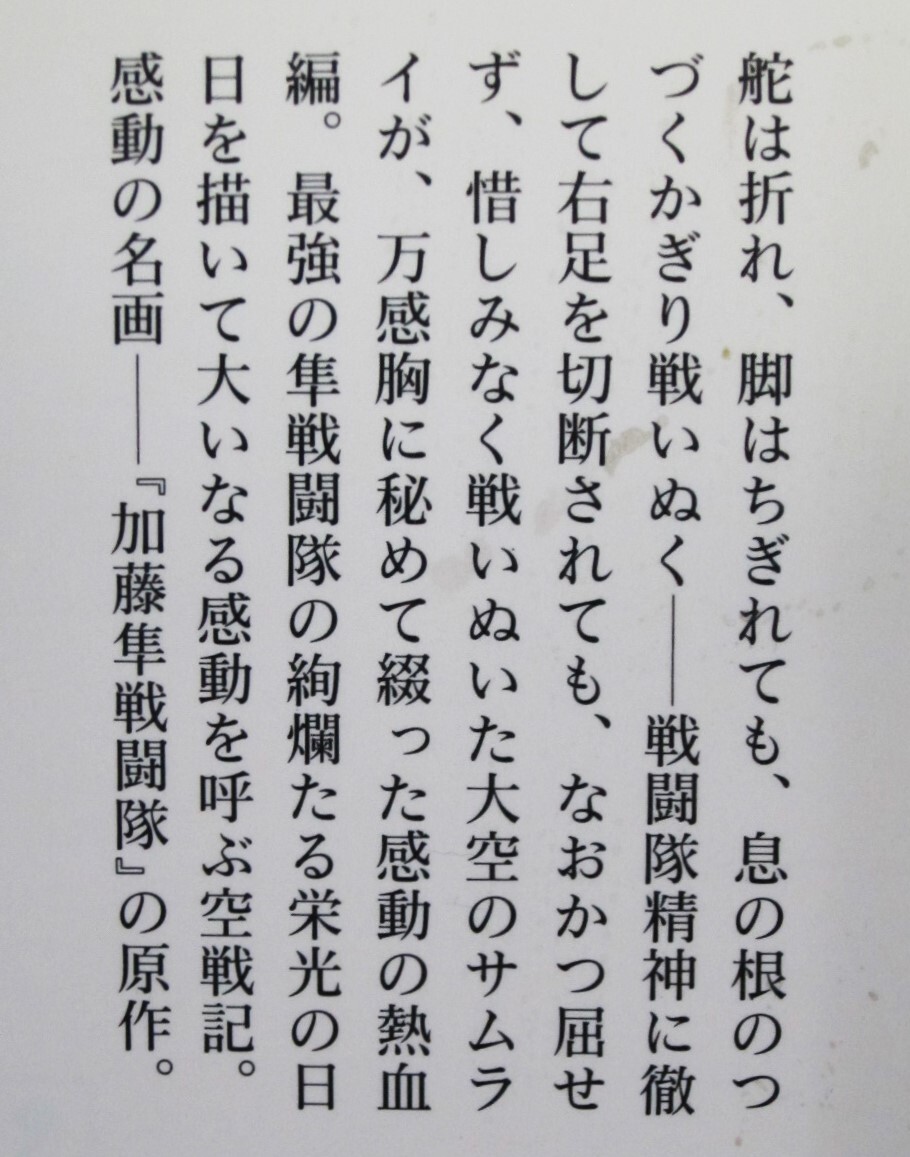 舵は折れ、脚はちぎれても、息の根のつ
づくかぎり戦いぬく——戦闘隊精神に徹
して右足を切断されても、なおかつ屈せ
ず、惜しみなく戦いぬいた大空のサムラ
イが、万感胸に秘めて綴った感動の熱血
編。最強の隼戦闘隊の絢爛たる栄光の日
日を描いて大いなる感動を呼ぶ空戦記。
感動の名画——『加藤隼戦闘隊』の原作。